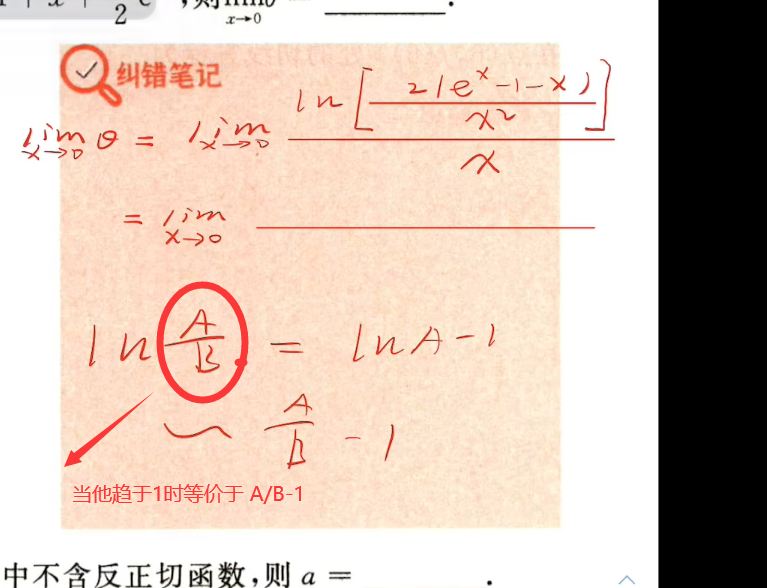 1 + x + x²/2 e ,则lim θ = ______ .
x→0
纠错笔记
lim x→0 θ = lim x→0 ln[2(eˣ-1-x)/x²]/x
= lim x→0 ______
ln A/B = lnA-1
~ A/B - 1
当他趋于1时等价于 A/B-1
中不含反正切函数,则 a = ______ .